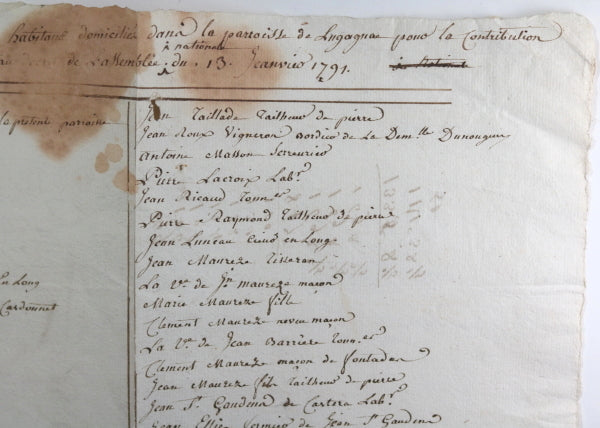 habitans domiciliés dans la paroisse de Lugagnac pour la Contribution
nationale
decret de L'assemblée du 13. Janvier 1791.
la presente parroisse
Jean Taillade Tailheur de pierre
Jean Roux Vigneron bordier de La Dem.lle
Antoine Masson Serreurier
Pierre Lacroix Lab.r
Jean Ricaud Tonn.er
Pierre Raymond Tailheur de pierre
Jean Luneau en Long
Jean Maureze Tisseran
La v.ve de J.n maureze maçon
Marie Maureze fille
Clement Maureze neveu maçon
La v.ve de Jean Barriere Tonn.er
Clement Maureze maçon de
Jean Maureze fils Tailheur de pierre
Jean S.t Gaudens de Cartera Lab.r
Jean Ellie fermier de Jean S.t Gaudens
en Long
Cardonnet